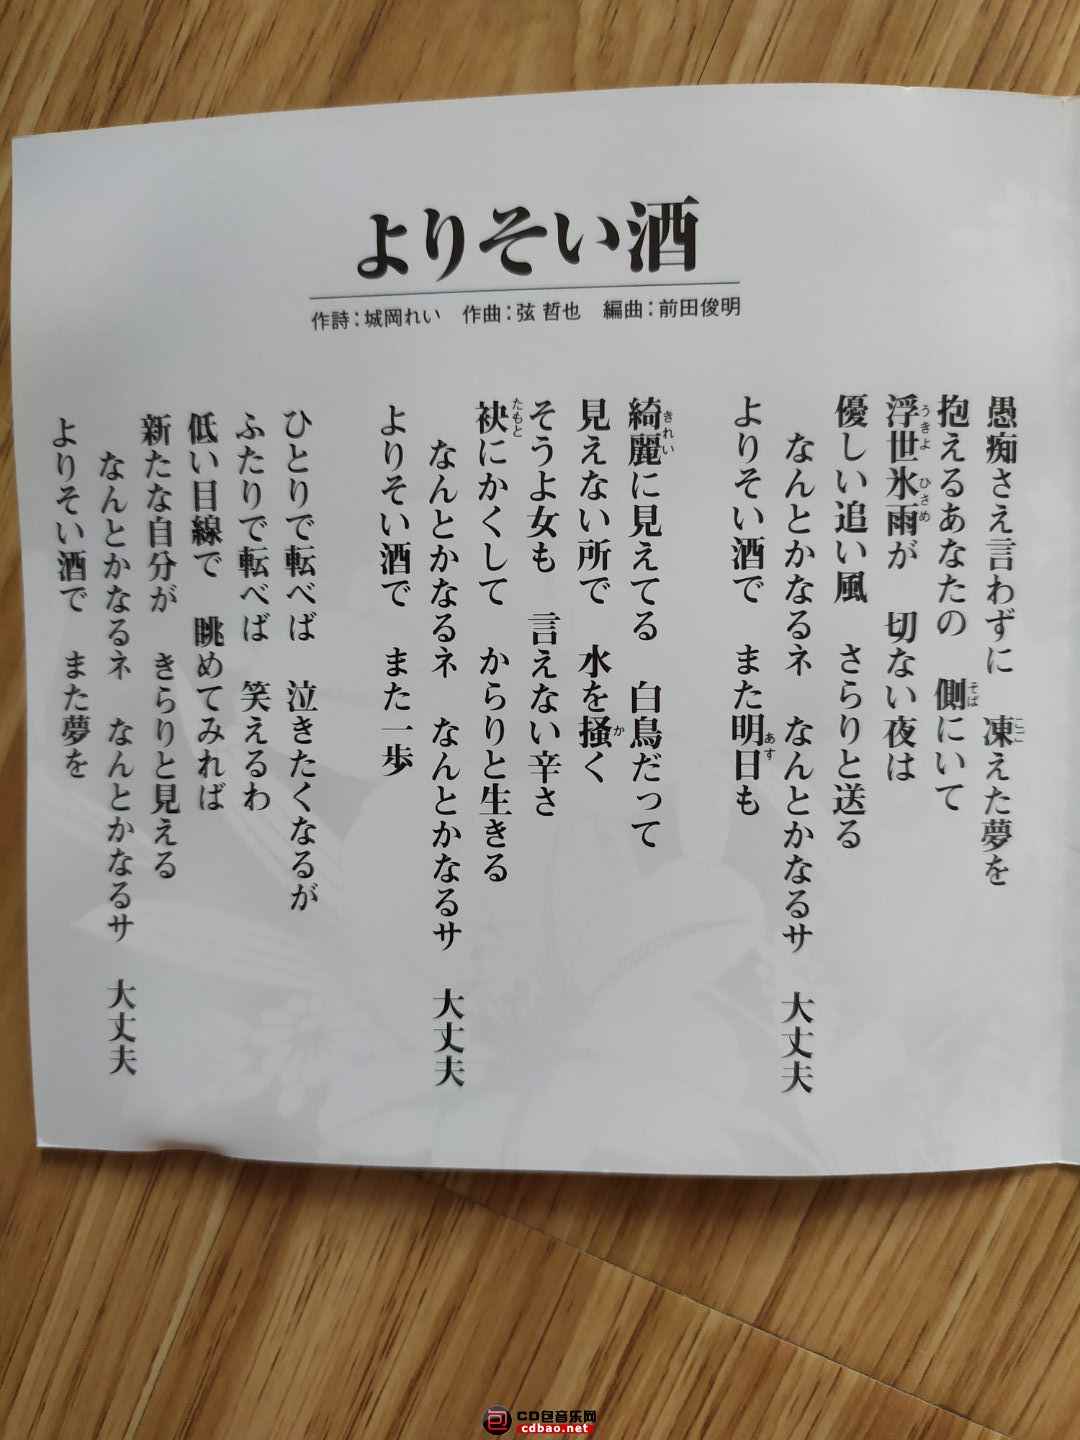 よりそい酒
作詩：城岡れい　作曲：弦 哲也　編曲：前田俊明
愚痴さえ言わずに　凍えた夢を
抱えるあなたの　側にいて
浮世氷雨が　切ない夜は
優しい追い風　さらりと送る
なんとかなるネ　なんとかなるサ　大丈夫
よりそい酒で　また明日も
綺麗に見えてる　白鳥だって
見えない所で　水を掻く
そうよ女も　言えない辛さ
袂にかくして　からりと生きる
なんとかなるネ　なんとかなるサ　大丈夫
よりそい酒で　また一歩
ひとりで転べば　泣きたくなるが
ふたりで転べば　笑えるわ
低い目線で　眺めてみれば
新たな自分が　きらりと見える
なんとかなるネ　なんとかなるサ　大丈夫
よりそい酒で　また夢を
CD包音乐网
cdbao.net